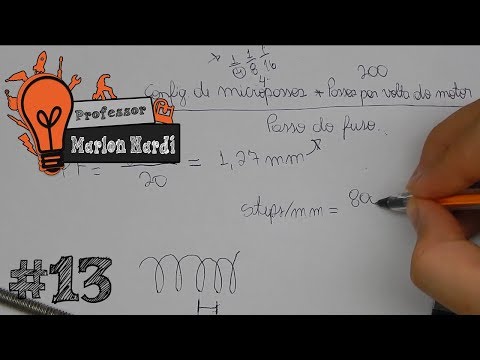 * 1/2 1/8 1/16
4
200
Config de micropassos * Passos por volta do motor
Passo do fuso..
Professor
Marlon Nardi
20
= 1,27mm
steps/mm = 80
#13
H